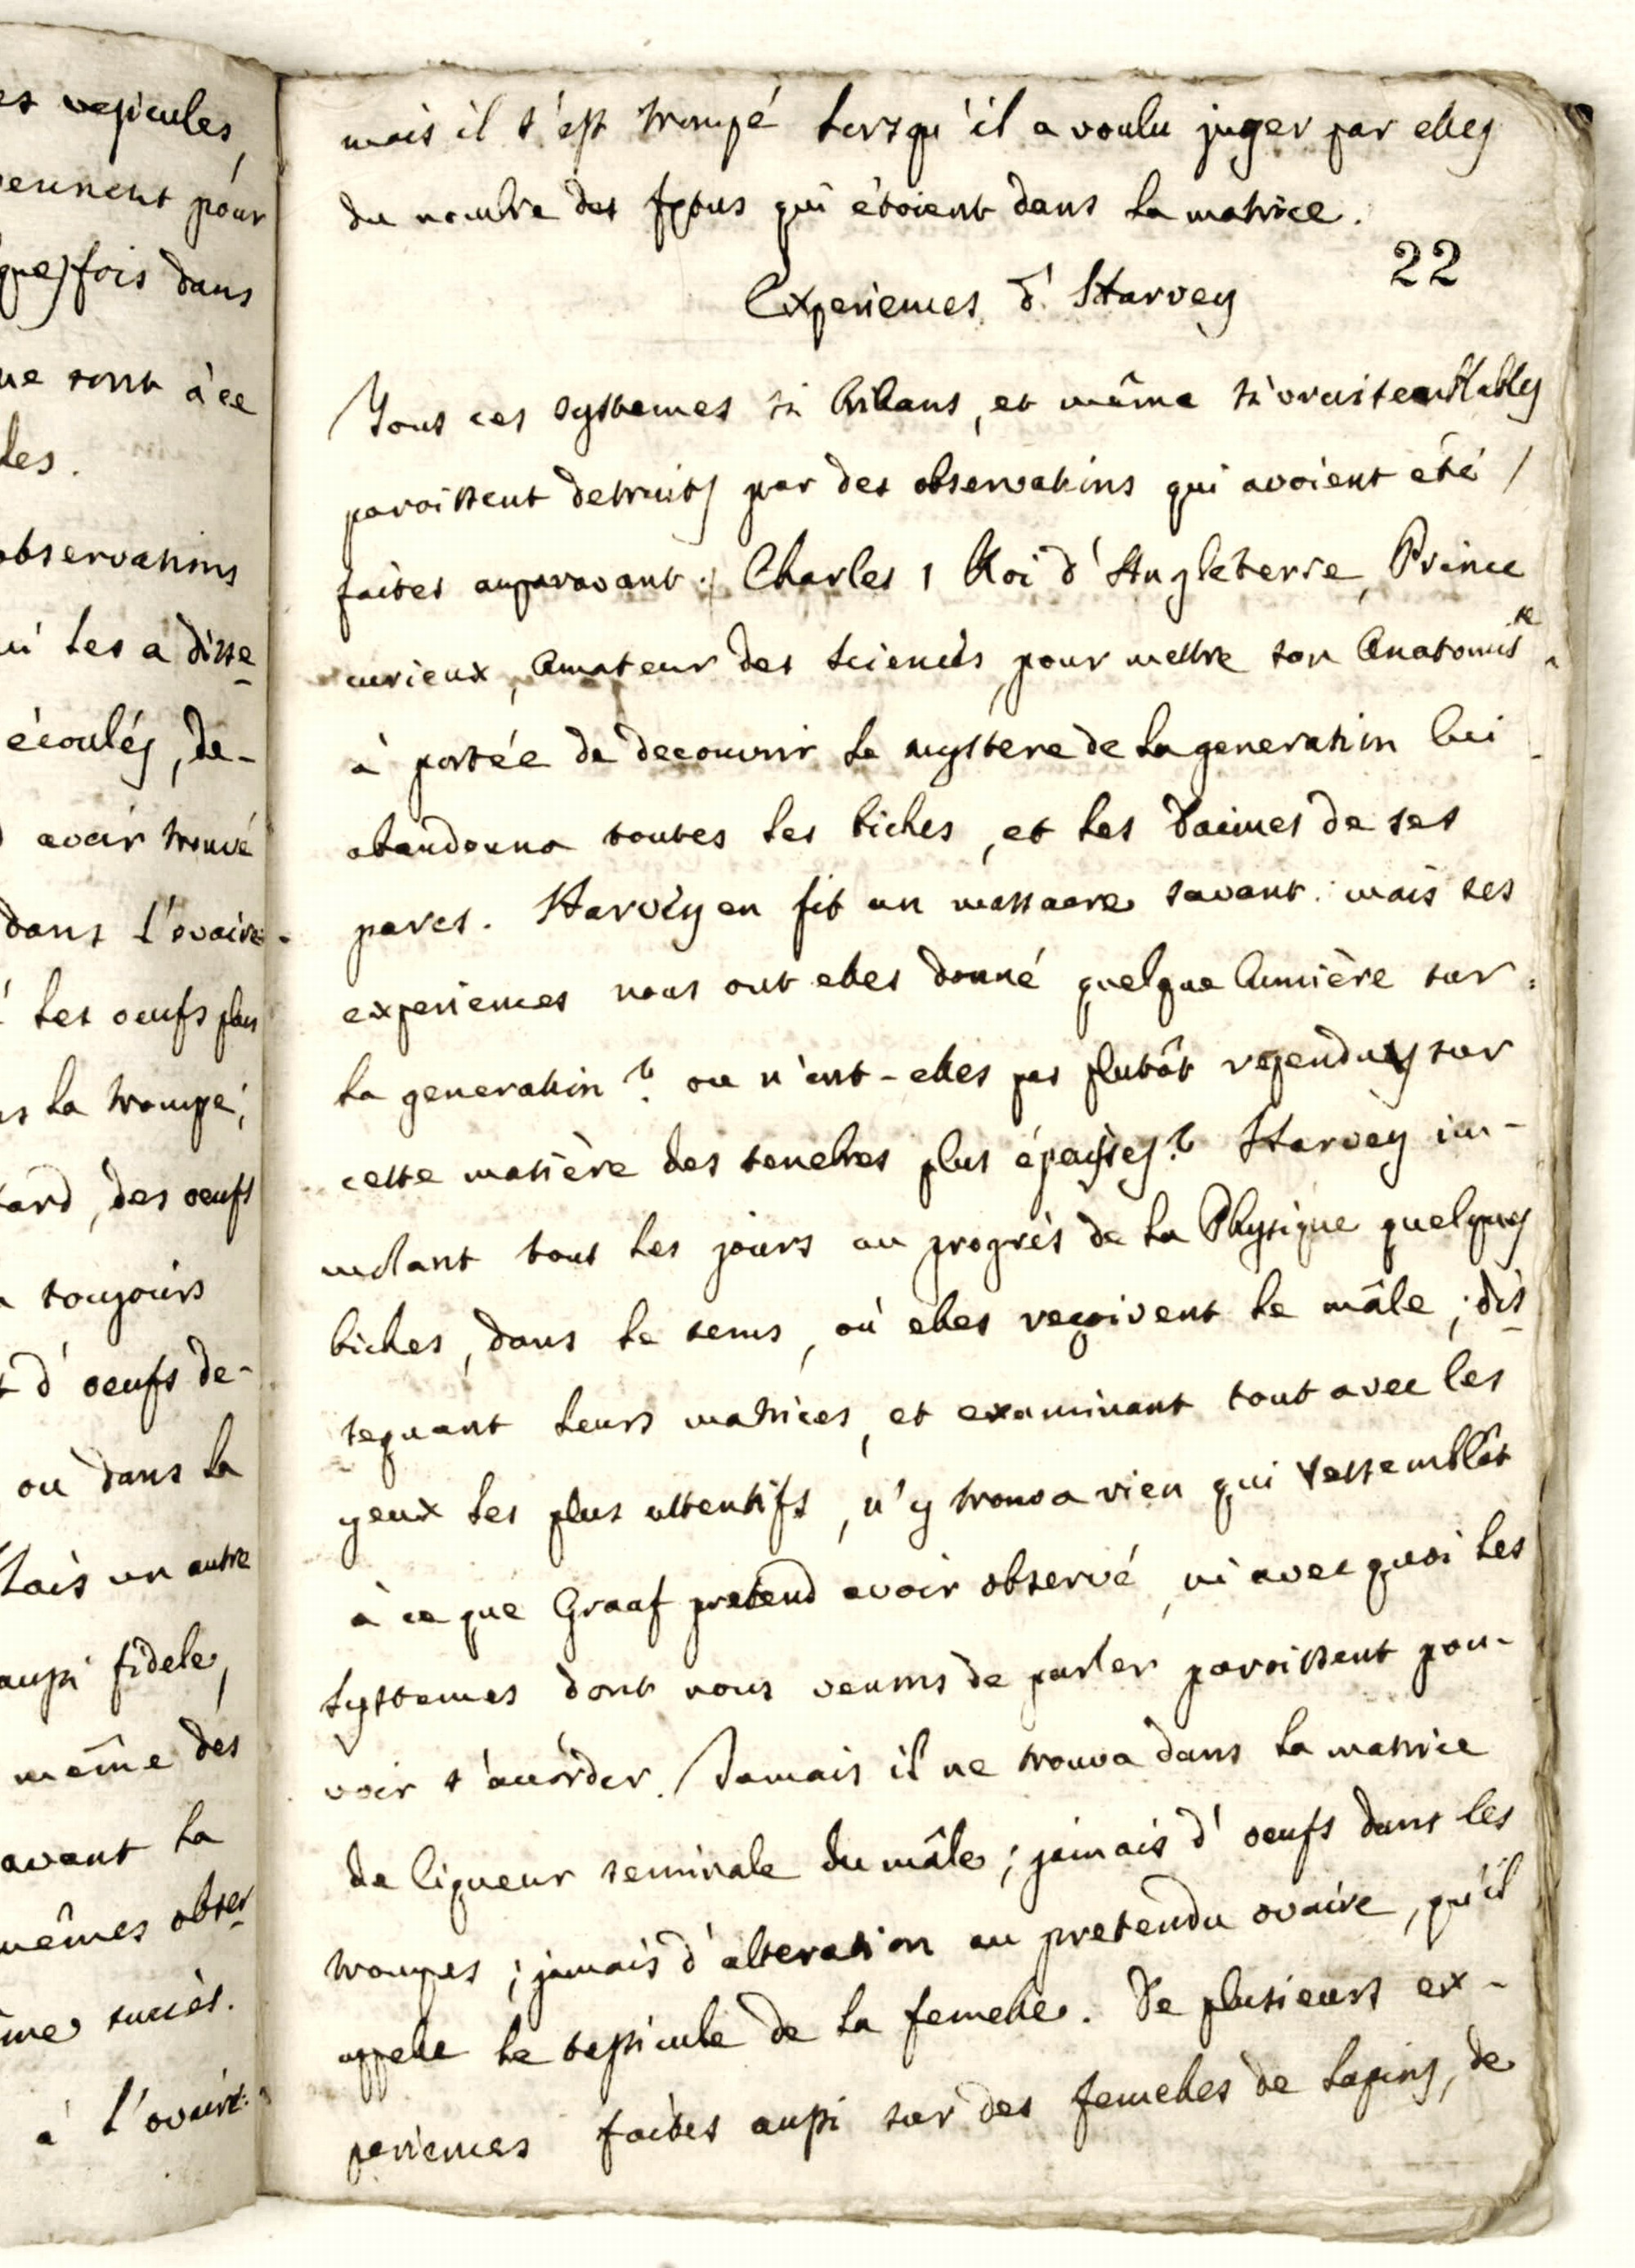 es vesicules,
ennent pour
que)fois dans
ue sont à ce
les.
observations
ui les a disse
écoulés, de-
avoir trouvé
dans l'ovaire
les oeufs plus
la trompe;
tard, des oeufs
toujours
d'oeufs de-
ou dans la
Mais un autre
aussi fidele,
même des
avant la
mêmes obser
me succès.
à l'ovaire.
mais il s'est trompé lorsqu'il a voulu juger par elles
du nombre des fœtus qui étoient dans la matrice.
22
Experiences d'Harvey
Tous ces systemes si brilans, et même si vraisemblables
paroissent detruits par des observations qui avoient été
faites auparavant. Charles 1 Roi d'Angleterre, Prince
curieux, Amateur des sciences, pour mettre son Anatomiste
à portée de decouvrir le mystere de la generation lui
abandonna toutes les biches, et les daimes de ses
parcs. Harvey en fit un massacre savant. mais ses
experiences nous ont elles donné quelque lumière sur
la generation? ou n'ont-elles pas plutôt rependues sur
cette matière des tenebres plus épaisses? Harvey im-
molant tous les jours au progrès de la Physique quelques
biches, dans le tems, où elles reçoivent le mâle; dis
sequant leurs matrices, et examinant tout avec les
yeux les plus attentifs, n'y trouva rien qui ressemblât
à ce que Graaf pretend avoir observé, ni avec quoi les
systemes dont nous venons de parler paroissent pou-
voir s'accorder. Jamais il ne trouva dans la matrice
de liqueur seminale du mâle; jamais d'oeufs dans les
trompes; jamais d'alteration au pretendu ovaire, qu'il
appele le testicule de la femelle. De plusieurs ex-
periences faites aussi sur des femelles de lapins, de